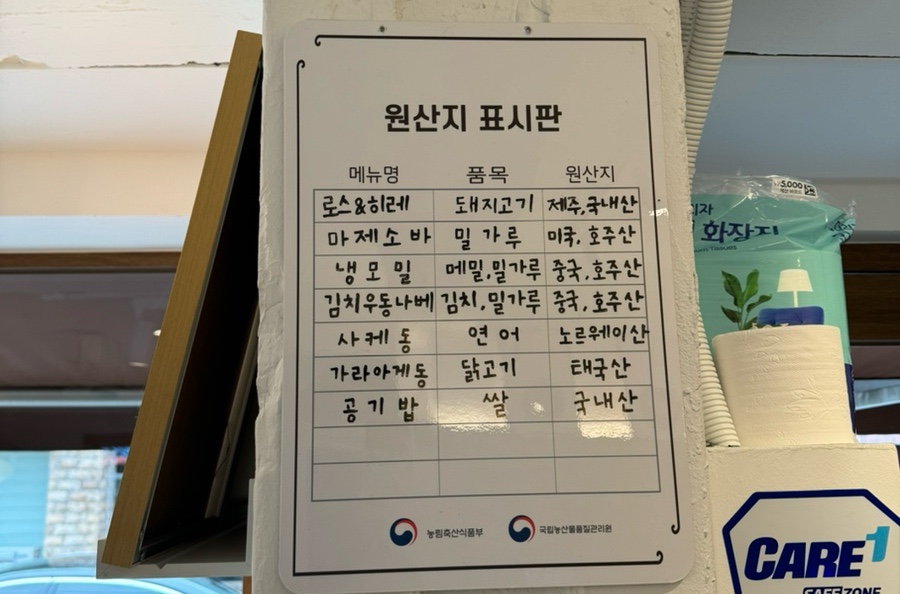 원산지 표시판
메뉴명 품목 원산지
로스&히레 돼지고기 제주,국내산
마제소바 밀가루 미국, 호주산
냉모밀 메밀,밀가루 중국, 호주산
김치우동나베 김치,밀가루 중국, 호주산
사케동 연어 노르웨이산
가라아게동 닭고기 태국산
공기밥 쌀 국내산
농림축산식품부 국립농산물품질관리원
5,000
화장지
CARE1
SAFE ZONE